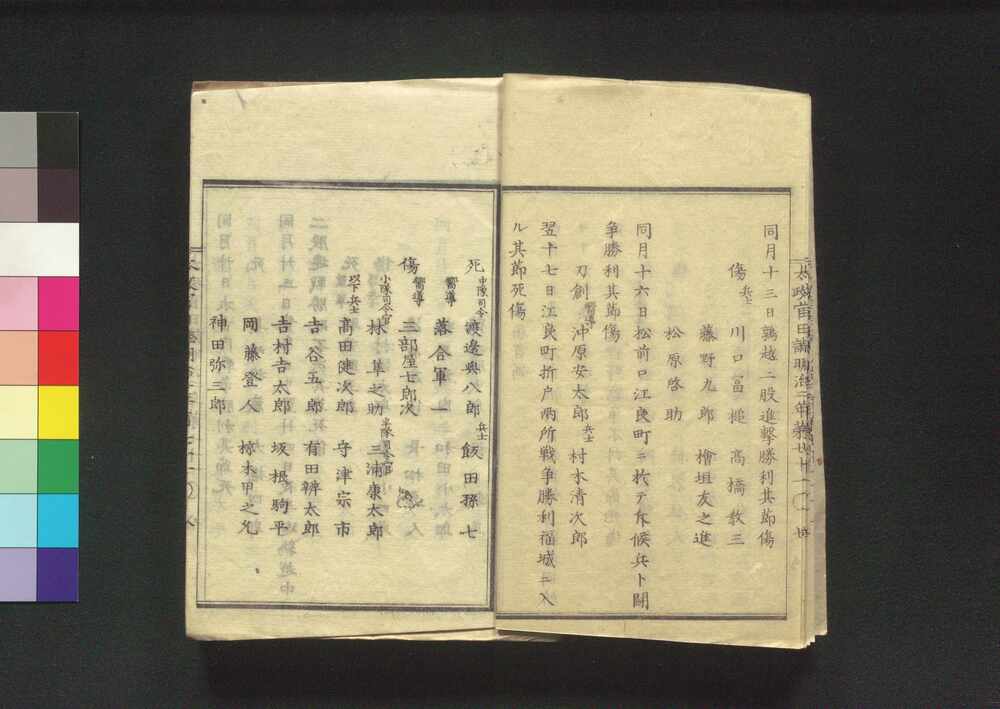 同月十三日鶉越二股進撃勝利其節傷
傷 兵士 川口冨槌 高橋敎三
藤野九郎 檜垣友之進
松原啓助
同月十六日松前口江良町ニ於テ斥候兵ト鬪
争勝利其節傷
刀創 嚮導 沖原安太郎 兵士 村木清次郎
翌十七日江良町折戸両所戦争勝利福城ニ入
ル其節死傷
死 半隊司令 渡邊典八郎 兵士 飯田孫七
嚮導 落合軍一
傷 嚮導 三部屋七郎次
小隊司令官 林隼之助 半隊司令官 三浦康太郎
以下兵士 髙田健次郎 守津宗市
吉谷五郎 有田辨太郎
吉村吉太郎 坂根駒平
岡藤登人 椋木甲之允
神田弥三郎